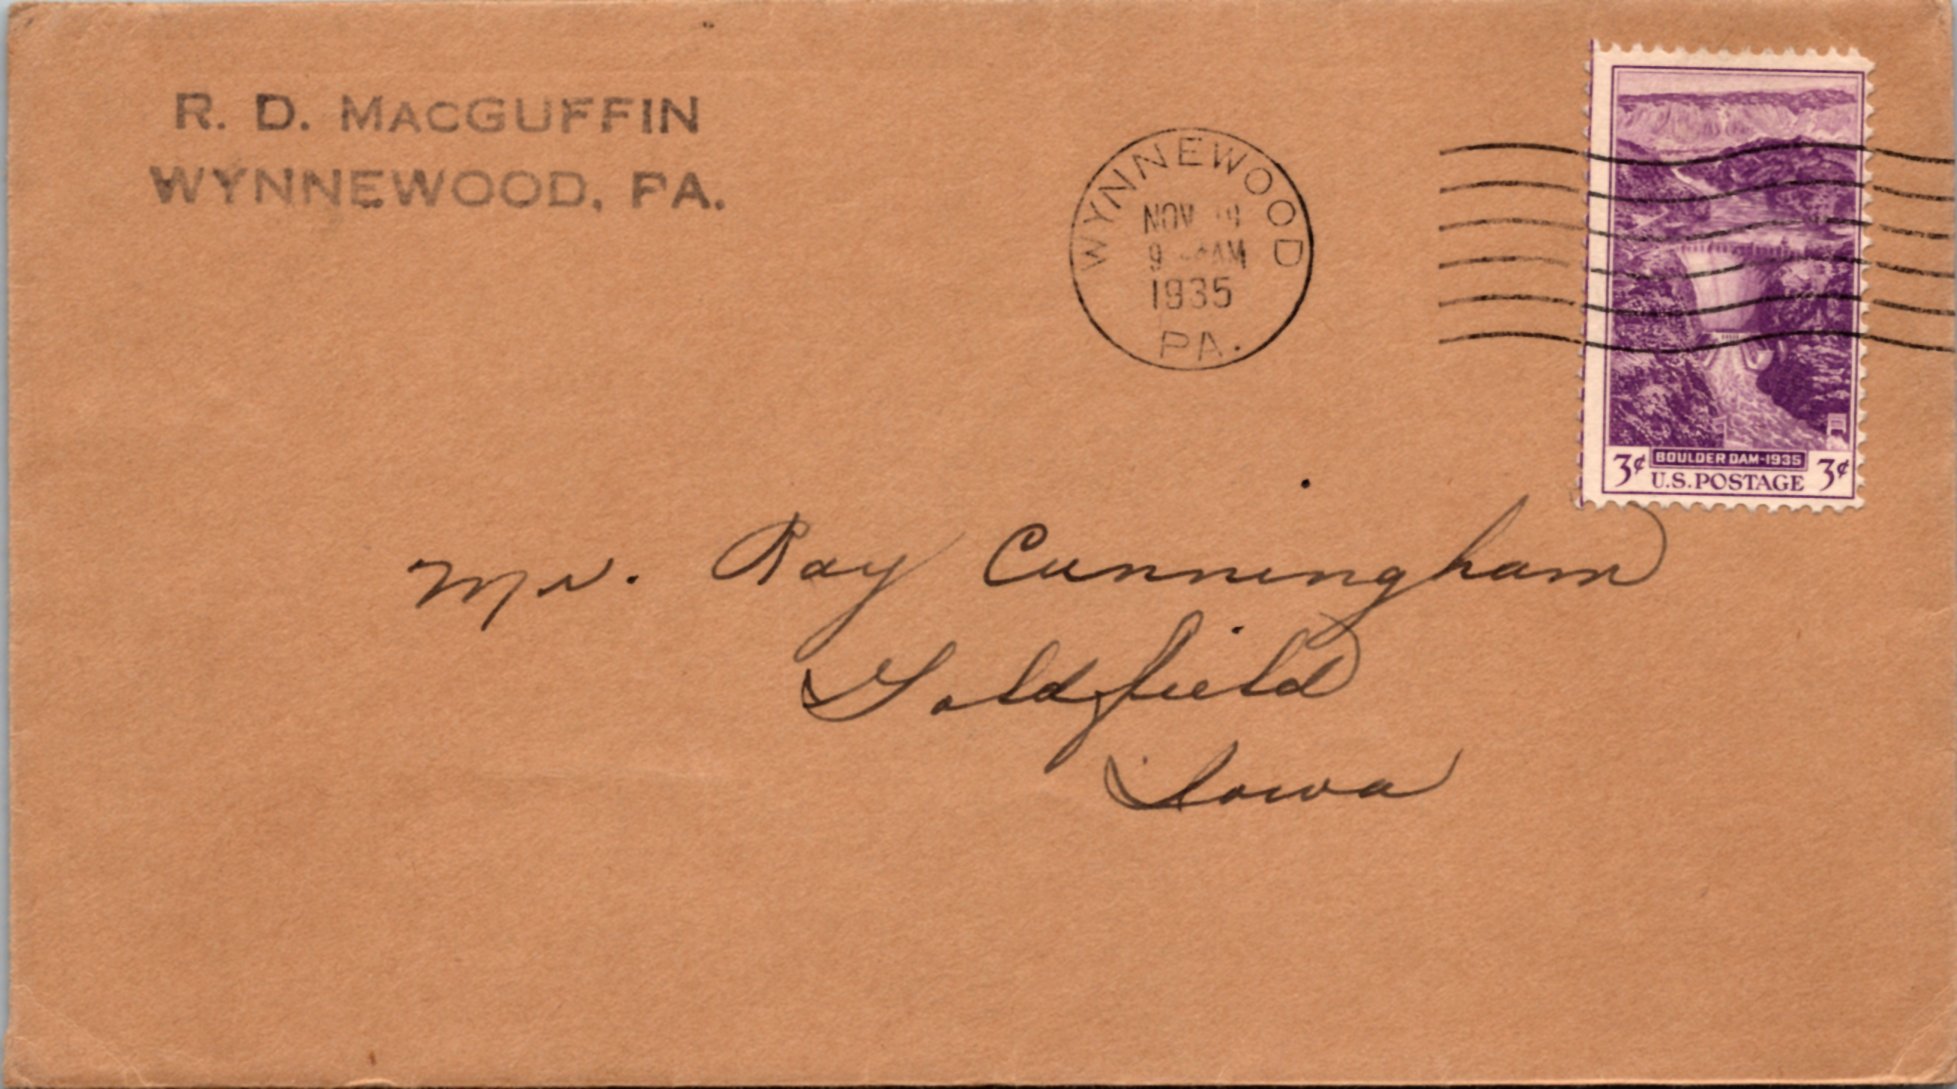 R. D. MACGUFFIN
WYNNEWOOD, PA.
WYNNEWOOD
NOV
9 AM
1935
PA.
BOULDER DAM-1935
3¢ U.S. POSTAGE 3¢
Mr. Ray Cunningham
Goldfield
Iowa